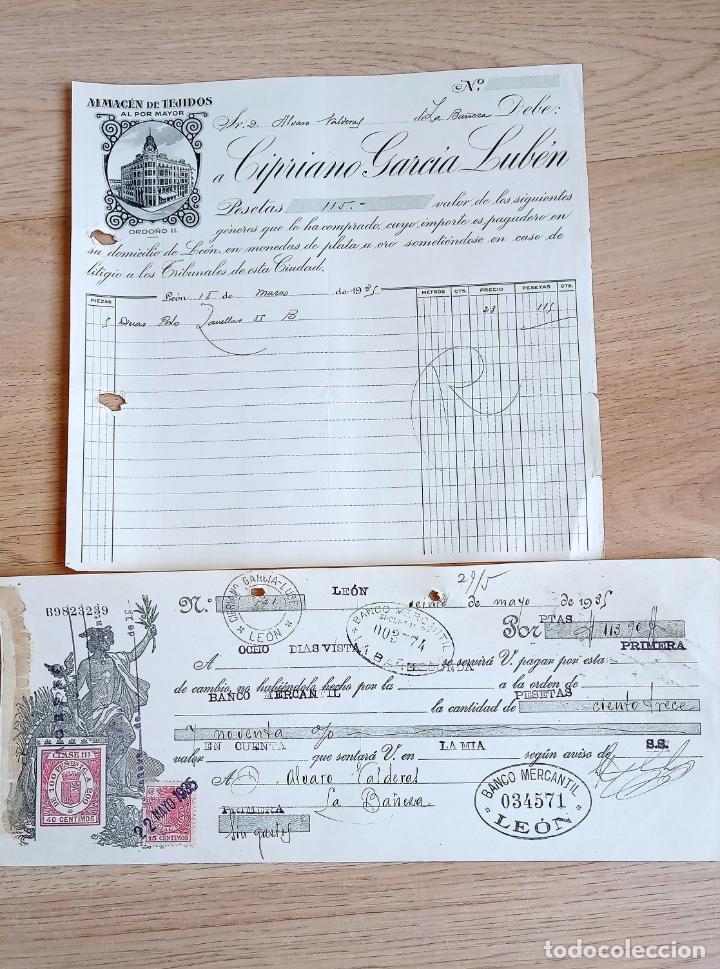 Nº
ALMACÉN DE TEJIDOS
AL POR MAYOR
ORDOÑO II.
Sr. D. Alvaro Valderas de La Bañeza Debe:
a Cipriano García Lubén
Pesetas 115.- valor de los siguientes
géneros que le ha comprado, cuyo importe es pagadero en
su domicilio de León, en monedas de plata u oro sometiéndose en caso de
litigio a los Tribunales de esta Ciudad.
León 18 de marzo de 1935
PIEZAS METROS CTS. PRECIO PESETAS CTS.
5 B 23 115
B9823239
Nº LEÓN de mayo de 1935
29/5
CIPRIANO GARCIA-LUBEN
LEÓN
BANCO MERCANTIL
002-74
Por PTAS 113.90
A OCHO DIAS VISTA se servirá V. pagar por esta PRIMERA
de cambio, no habiéndolo hecho por la a la orden de
BANCO MERCANTIL la cantidad de PESETAS ciento trece
y noventa
valor EN CUENTA que sentará V. en LA MIA según aviso de S.S.
A D. Alvaro Valderas
La Bañeza
PRIMERA
Sin gastos
BANCO MERCANTIL
034571
LEÓN
CLASE 11ª
40 CENTIMOS
22 MAYO 1935
15 CENTIMOS
todocoleccion